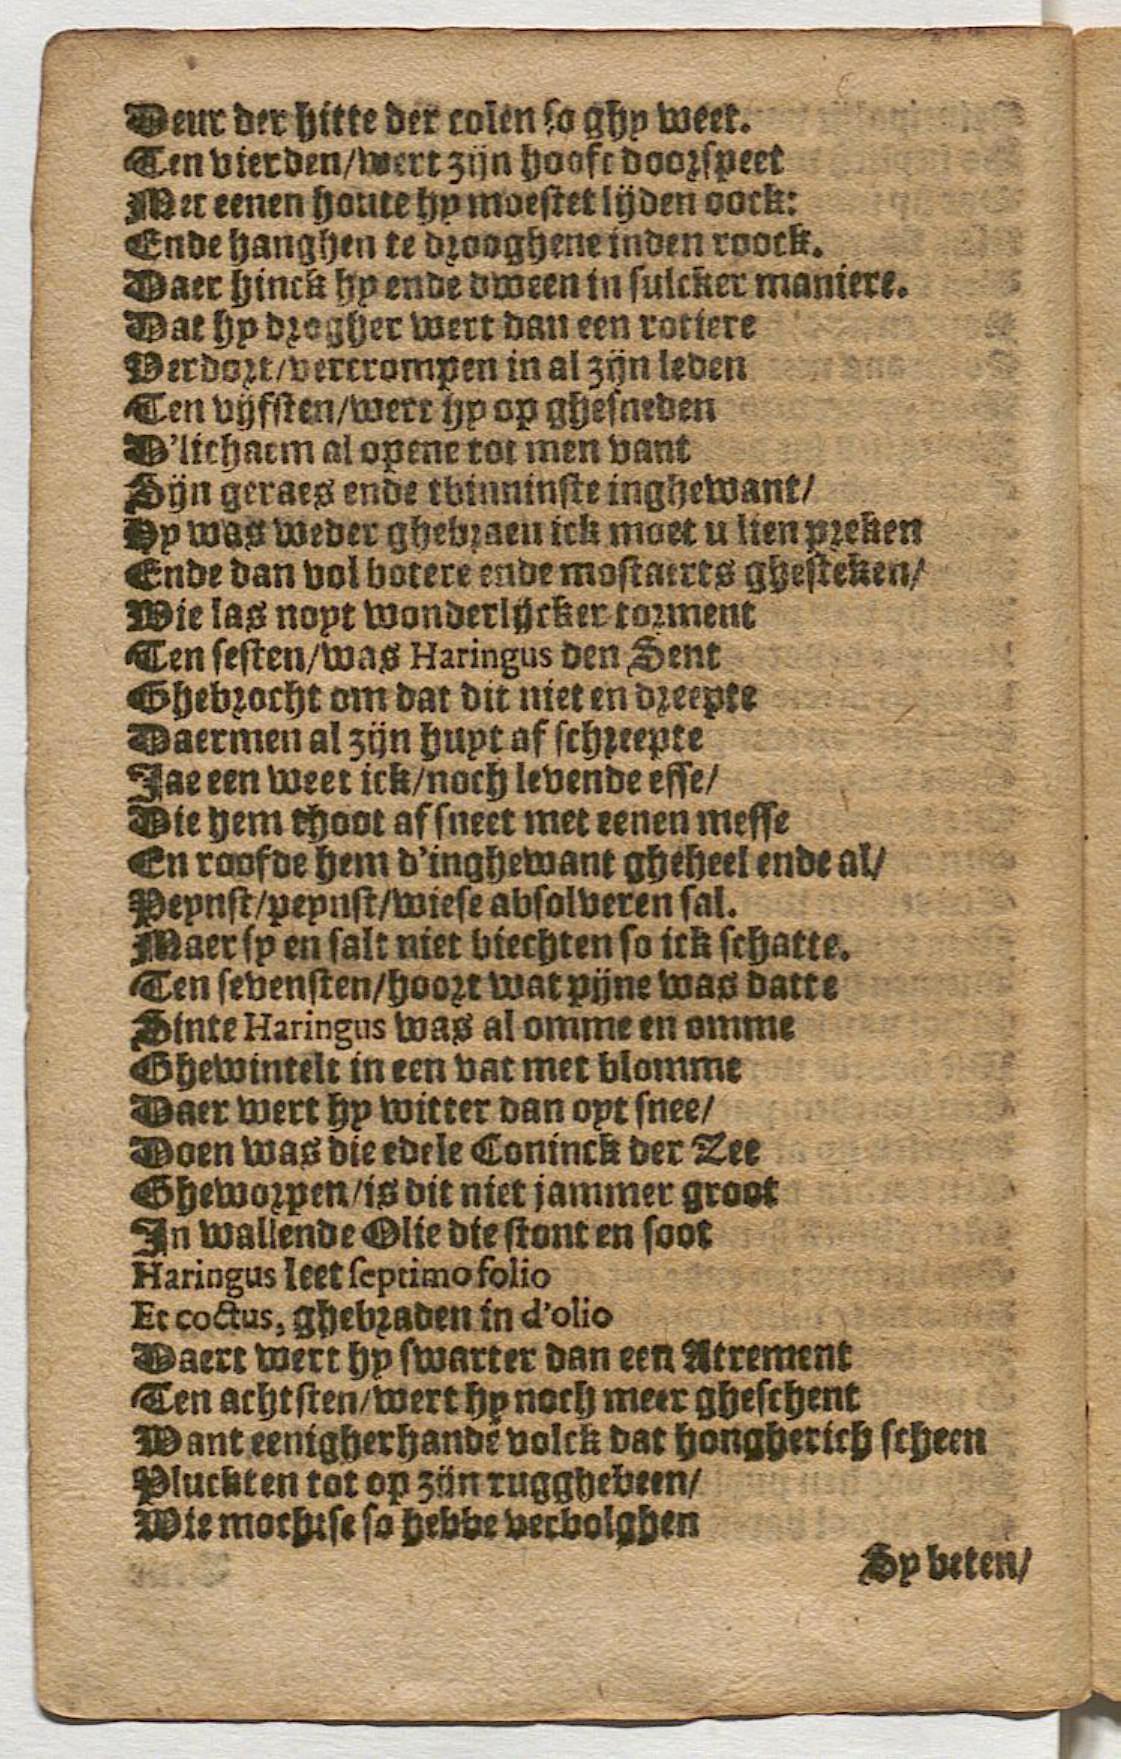 Deur der hitte der colen so ghy weet.
Ten vierden/wert zijn hooft doorspeet
Met eenen houte hy moestet lijden oock:
Ende hanghen te drooghene inden roock.
Daer hinck hy ende dween in sulcker maniere.
Dat hy drogher wert dan een rotiere
Verdort/vercrompen in al zijn leden
Ten vijfsten/wert hy op ghesneden
D'lichaem al opene tot men vant
Sijn geraes ende tbinninste inghewant/
Hy was weder ghebraeu ick moet u lien preken
Ende dan vol botere ende mostaerts ghesteken/
Wie las noyt wonderlijcker torment
Ten sesten/was Haringus den Sent
Ghebrocht om dat dit niet en dreepte
Daermen al zijn huyt af schreepte
Jae een weet ick/noch levende esse/
Die hem thoot af sneet met eenen messe
En roofde hem d'inghewant gheheel ende al/
Peynst/peynst/wiese absolveren sal.
Maer sy en salt niet biechten so ick schatte.
Ten sevensten/hoort wat pijne was datte
Sinte Haringus was al omme en omme
Ghewintelt in een vat met blomme
Daer wert hy witter dan oyt snee/
Doen was die edele Coninck der Zee
Gheworpen/is dit niet jammer groot
In wallende Olie die stont en soot
Haringus leet septimo folio
Et coctus, ghebraden in d'olio
Daert wert hy swarter dan een Atrement
Ten achtsten/wert hy noch meer gheschent
Want eenigherhande volck dat hongherich scheen
Pluckten tot op zijn rugghebeen/
Wie mochtse so hebbe verbolghen
Sy beten/